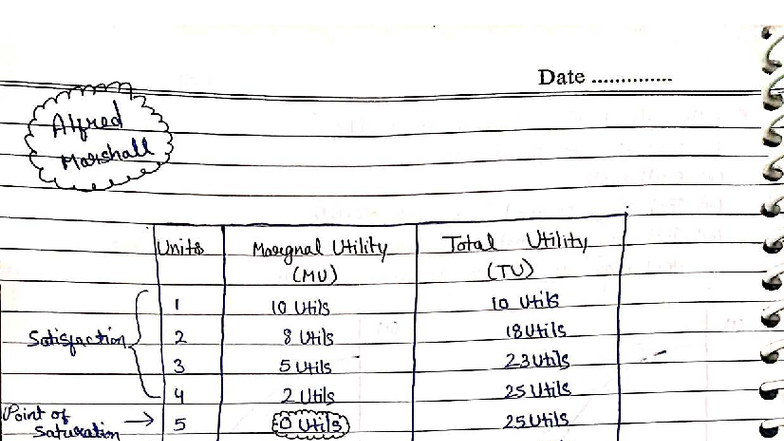 Date ..............
Alfred
Marshall
Units Marginal Utility (MU) Total Utility (TU)
1 10 Utils 10 Utils
Satisfaction { 2 8 Utils 18 Utils
3 5 Utils 23 Utils
4 2 Utils 25 Utils
Point of Saturation → 5 0 Utils 25 Utils